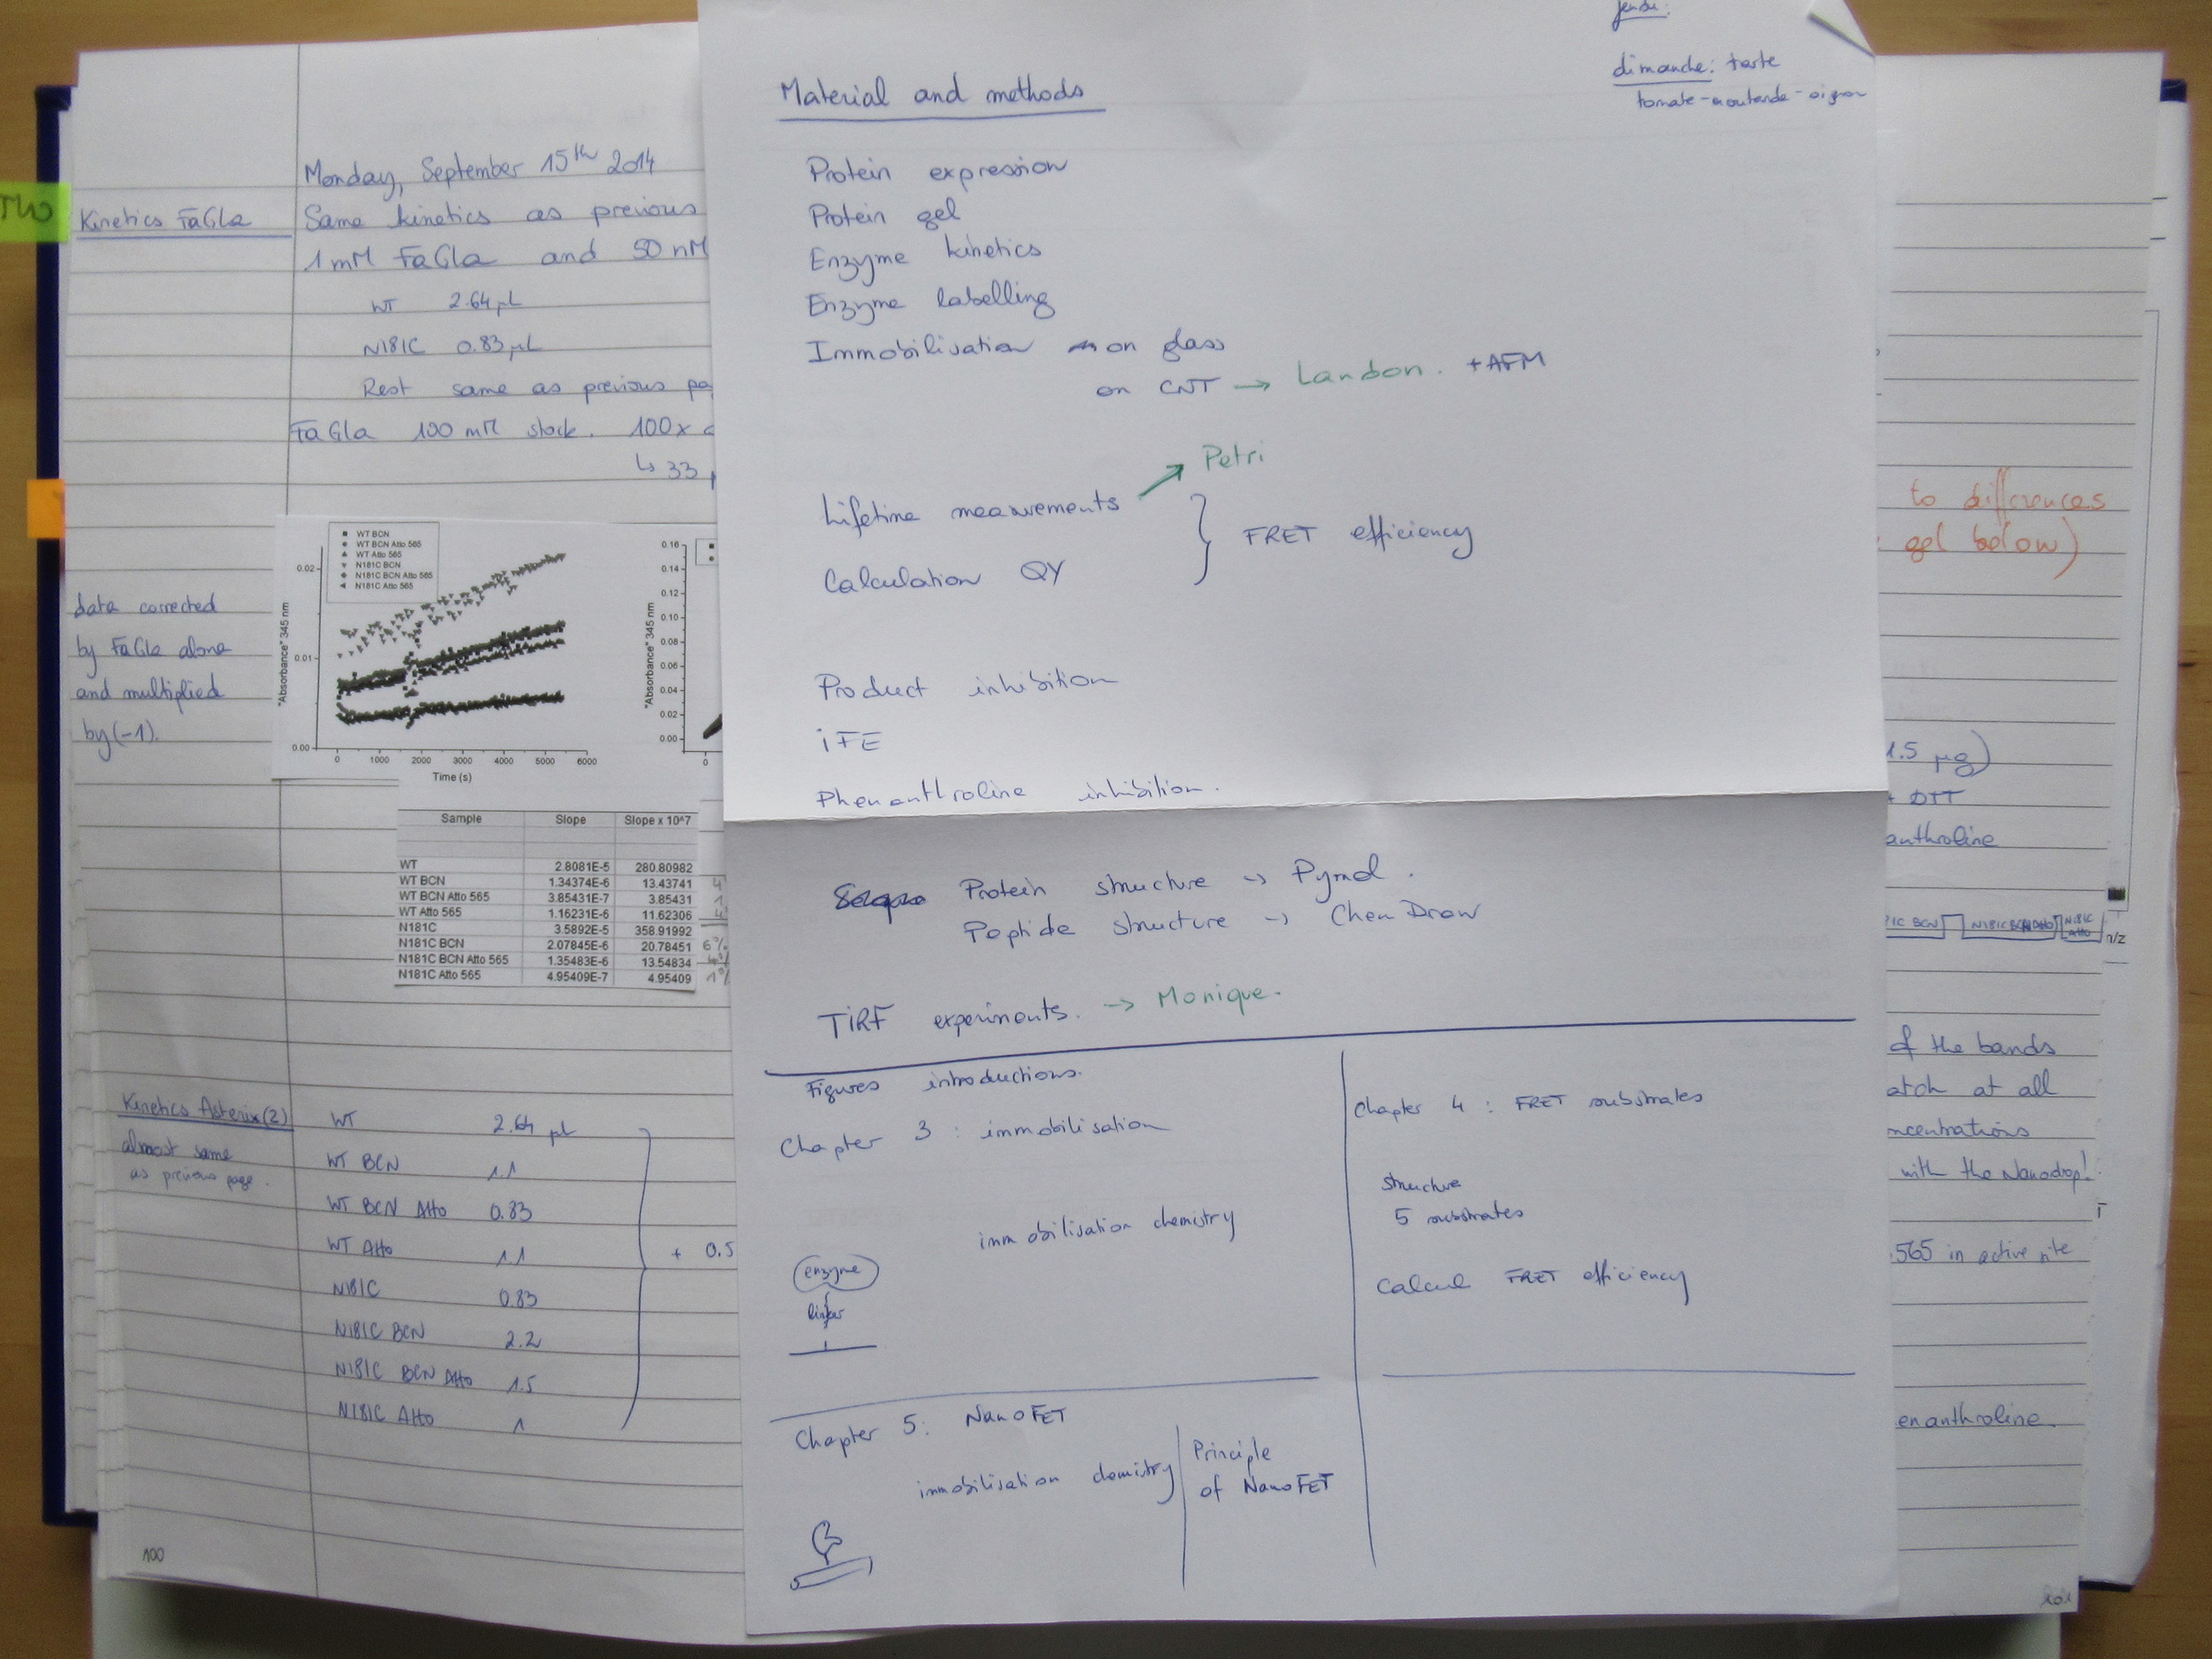 TWO
Kinetics FaGla
Monday, September 15th 2014
Same kinetics as previous
1 mM FaGla and 50 nM
WT 2.64 µL
N181C 0.83 µL
Rest same as previous
FaGla 100 mM stock. 100x
↳ 33
data corrected
by FaGla alone
and multiplied
by (-1).
WT BCN
WT BCN Atto 565
WT Atto 565
N181C BCN
N181C BCN Atto 565
N181C Atto 565
"Absorbance" 345 nm
0.02
0.01
0.00
0 1000 2000 3000 4000 5000 6000
Time (s)
"Absorbance" 345 nm
0.16
0.14
0.12
0.10
0.08
0.06
0.04
0.02
0.00
0
Sample Slope Slope x 10^7
WT 2.8081E-5 280.80982
WT BCN 1.34374E-6 13.43741
WT BCN Atto 565 3.85431E-7 3.85431
WT Atto 565 1.16231E-6 11.62306
N181C 3.5892E-5 358.91992
N181C BCN 2.07845E-6 20.78451 6%
N181C BCN Atto 565 1.35483E-6 13.54834 4%
N181C Atto 565 4.95409E-7 4.95409 1%
Kinetics Asterix (2)
almost same
as previous page.
WT 2.64 µL
WT BCN 1.1
WT BCN Atto 0.83
WT Atto 1.1
N181C 0.83
N181C BCN 2.2
N181C BCN Atto 1.5
N181C Atto 1
+ 0.5
100
jeudi:
dimanche: tarte
tomate-moutarde-oignon
Material and methods
Protein expression
Protein gel
Enzyme kinetics
Enzyme labelling
Immobilisation on glass
on CNT → Landon. + AFM
Lifetime measurements → Petri
Calculation QY
FRET efficiency
Product inhibition
iFE
Phenanthroline inhibition.
Protein structure → Pymol.
Peptide structure → ChemDraw
TiRF experiments. → Monique.
Figures introductions.
Chapter 3: immobilisation
immobilisation chemistry
enzyme
linker
Chapter 4: FRET substrates
structure
5 substrates
Calcul FRET efficiency
Chapter 5: NanoFET
immobilisation chemistry
Principle
of NanoFET
to differences
gel below)
1.5 µg)
+ DTT
anthroline
1C BCN N181C BCN Atto N181C Atto
m/z
of the bands
atch at all
ncentrations
with the Nanodrop!
565 in active site
enanthroline.
101